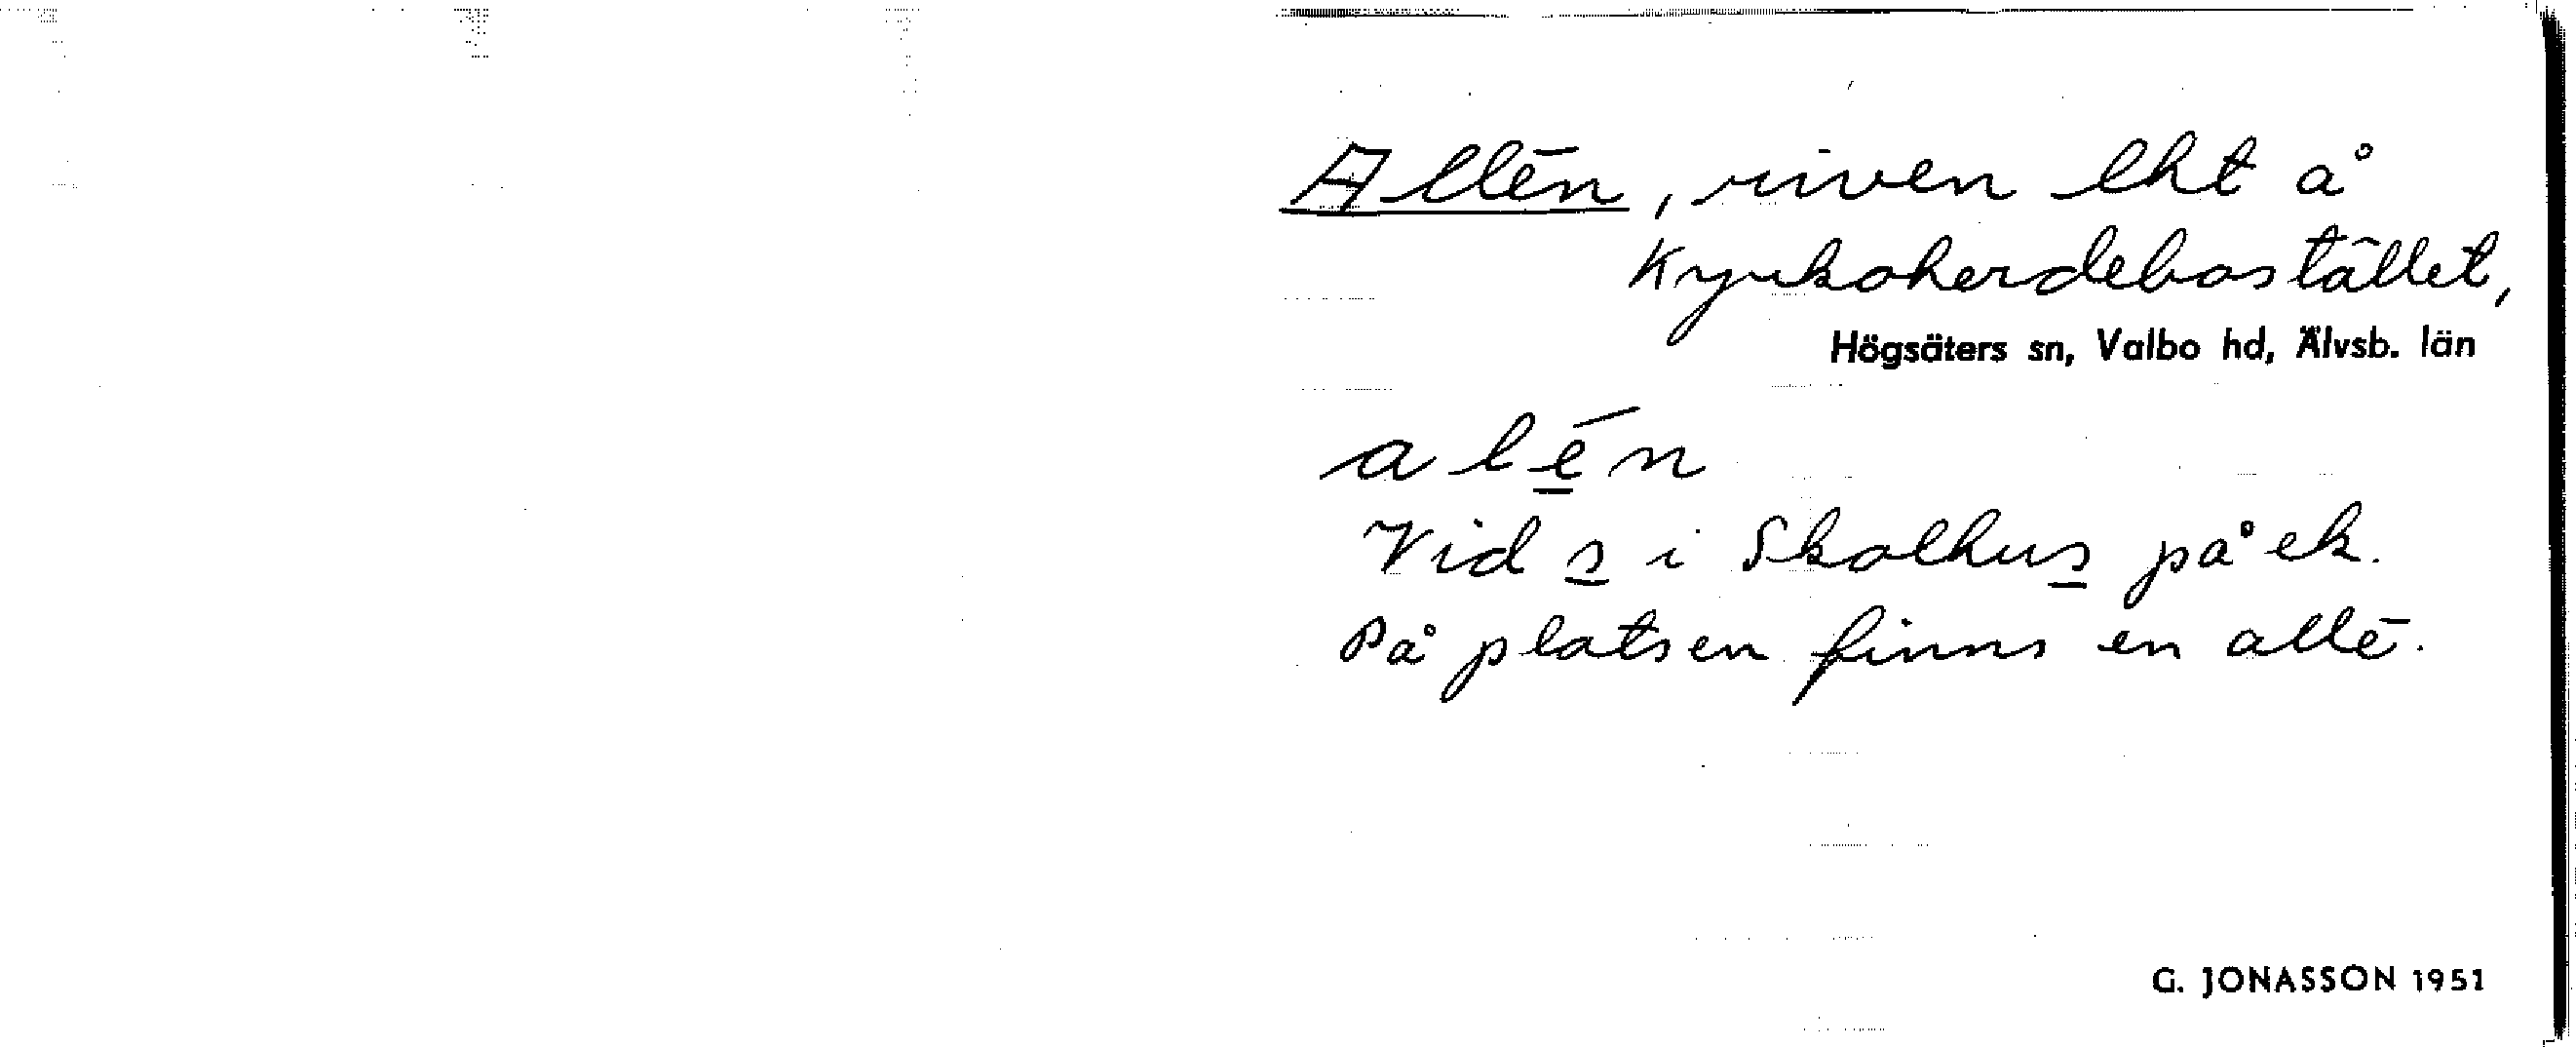 Allén, riven lht å
Kyrkoherdebostället,
Högsäters sn, Valbo hd, Älvsb. län
alén
Vid s i Skolhus på ek.
På platsen finns en allé.
G. JONASSON 1951